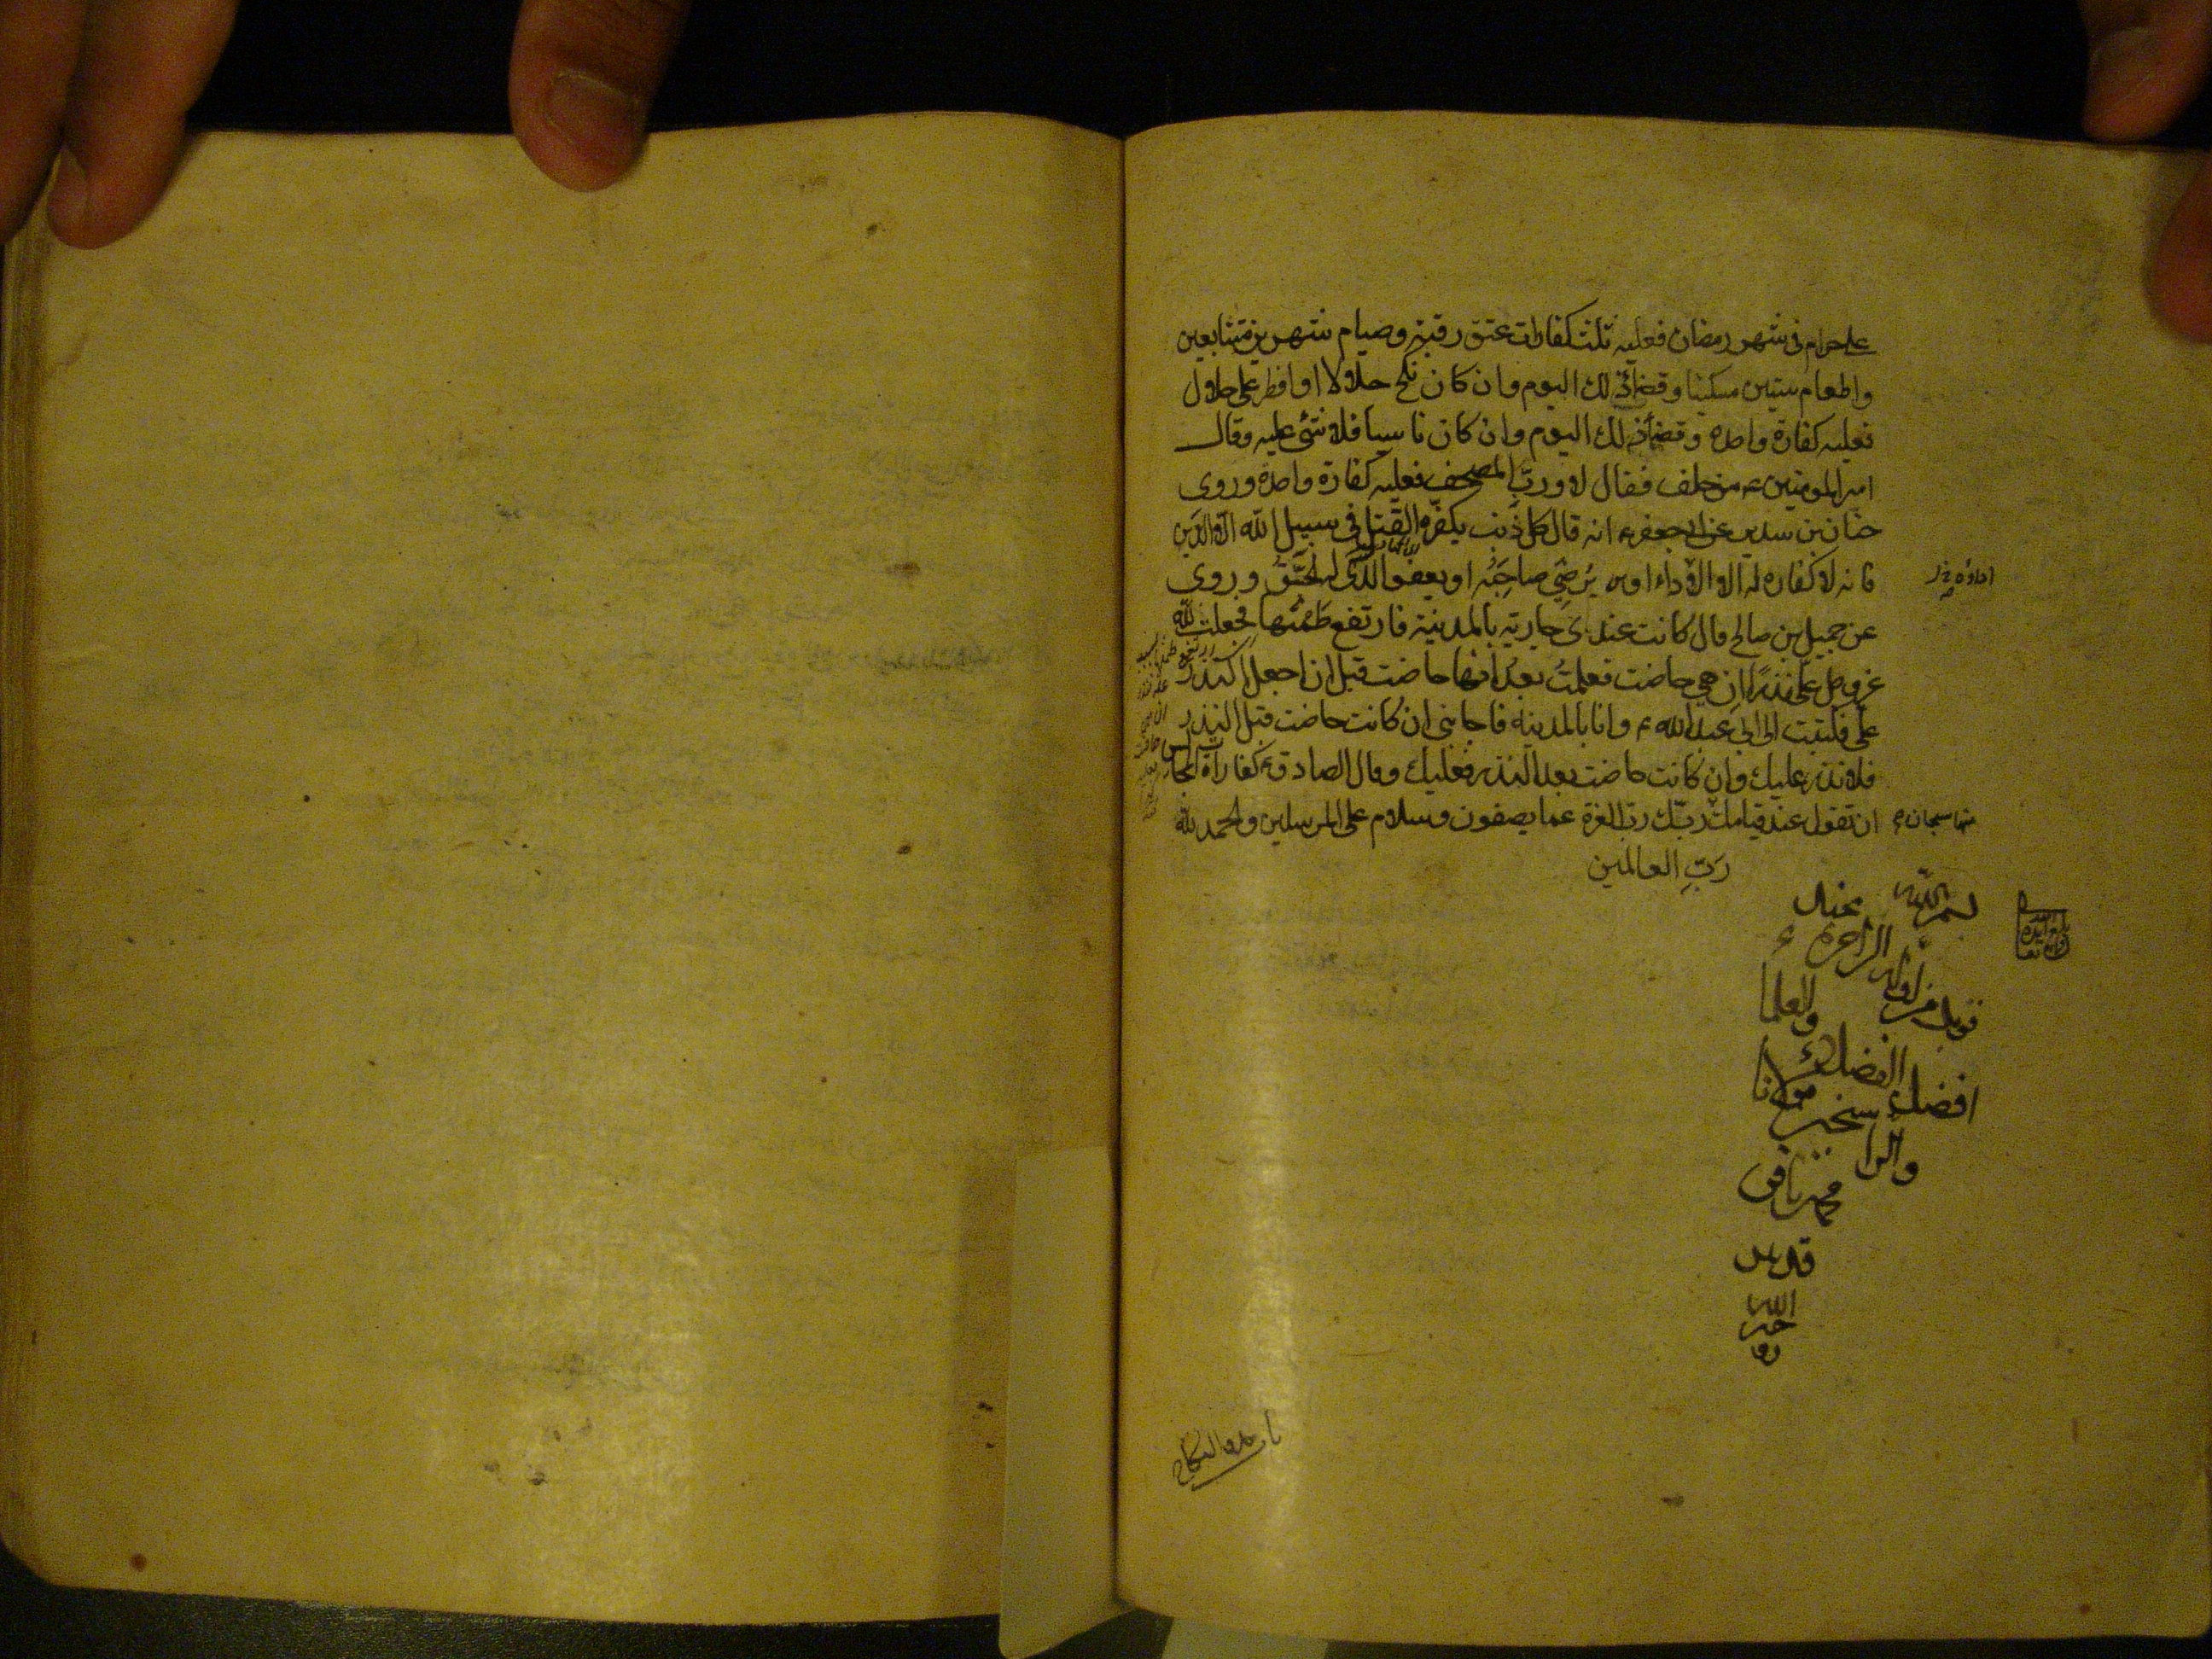 على حرام في شهر رمضان فعليه ثلث كفارات عتق رقبة وصيام شهرين متتابعين
واطعام ستين مسكينا وقضاء ذلك اليوم وان كان نكح حلالا او افطر على حلال
فعليه كفارة واحدة وقضاء ذلك اليوم وان كان ناسيا فلا شئ عليه وقال
امير المومنين ع من حلف فقال لا ورب المصحف فعليه كفارة واحدة وروى
حنان بن سدير عن ابي جعفر ع انه قال كل ذنب يكفره القتل في سبيل الله الا الدين
فانه لا كفاره له الا الاداء او يرضي صاحبه او يعفو الذي له الحق وروى
اداؤه خ ل
عن جميل بن صالح قال كانت عندي جارية بالمدينة فارتفع طمثها فجعلت لله
عز وجل علي نذرا ان هي حاضت فعلمت بعد انها حاضت قبل ان اجعل النذر
علي فكتبت الى ابي عبد الله ع وانا بالمدينة فاجابني ان كانت حاضت قبل النذر
فلا نذر عليك وان كانت حاضت بعد النذر فعليك وقال الصادق ع كفارات المجالس
ان تقول عند قيامك ربك رب العزة عما يصفون وسلام على المرسلين والحمد لله
منها سبحان
رب العالمين
بسم الله
قوبل من اوله الى اخره عند
افضل الفضلاء والعلما
مولانا
محمد باقر
قدس
الله
روحه